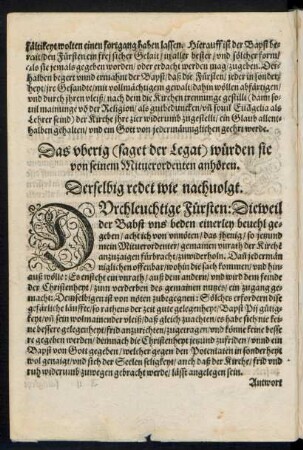 fältikeyt wolten einen fortgang haben lassen. Hierauff ist der Bapst be-
reit/den Fürsten ein frej sicher Gelait/in aller bester/vnd sölcher form/
als sie jemals gegeben worden/oder erdacht werden mag/zugeben. Der-
halben begert vnnd ermahnt der Bapst/daß die Fürsten/jeder in sonder-
heyt/jre Gesandte/mit vollmächtigem gewalt/dahin wöllen abfärtigen/
vnd durch jhren vleiß/nach dem die Kirchen trennunge gestilt (dann so-
uil mainunge vō der Religion/als gutbeduncken/vñ souil Euāgelia als
Lehrer seind) der Kirchē jhre zier widerumb zugestelt/ein Glaub allent-
halben gehalten/vnd ein Gott von jedermänniglichen geehrt werde.
Das vberig (saget der Legat) würden sie
von seinem Mituerordenten anhören.
Derselbig redet wie nachuolgt.
DVrchleuchtige Fürsten: Dieweil
der Babst vns beden einerley beuehl ge-
geben/acht ich von vnnöten/das jhenig/so jr vnd
mein Mituerordenter/gemainen vnrath der Kirche
anzuzaigen fürbracht/zuwiderholn. Dañ jedermän
niglichen offenbar/wohin die sach kommen/vnd hin-
auß wölle: Es ansteht ein vnrath/auß dem andern/vnd wird dem feinde
der Christenheyt/zum verderben des gemainen nutzes/ein zugang ge-
macht: Demselbigen ist von nöten zubegegnen: Sölches erfordern dise
gefärliche läufften/so rathens der zeit gute gelegenheyt/Bapst Pij gütig-
keyt/vñ sein wolmainender vleiß/daß gleich zuachten/es habe sich nie kei-
ne bessere gelegenheyt/frid anzurichten/zugetragen/vnd könne keine besse
re gegeben werden/demnach die Christenheyt jetzund zufriden/vnnd ein
Bapst von Gott gegeben/welcher gegen den Potentaten in sonderheyt
wol genaigt/vnd sich der Seelen seligkeyt/auch daß der Kirche/frid vnd
ruh widerumb zuwegen gebracht werde/läßt angelegen sein.
Antwort